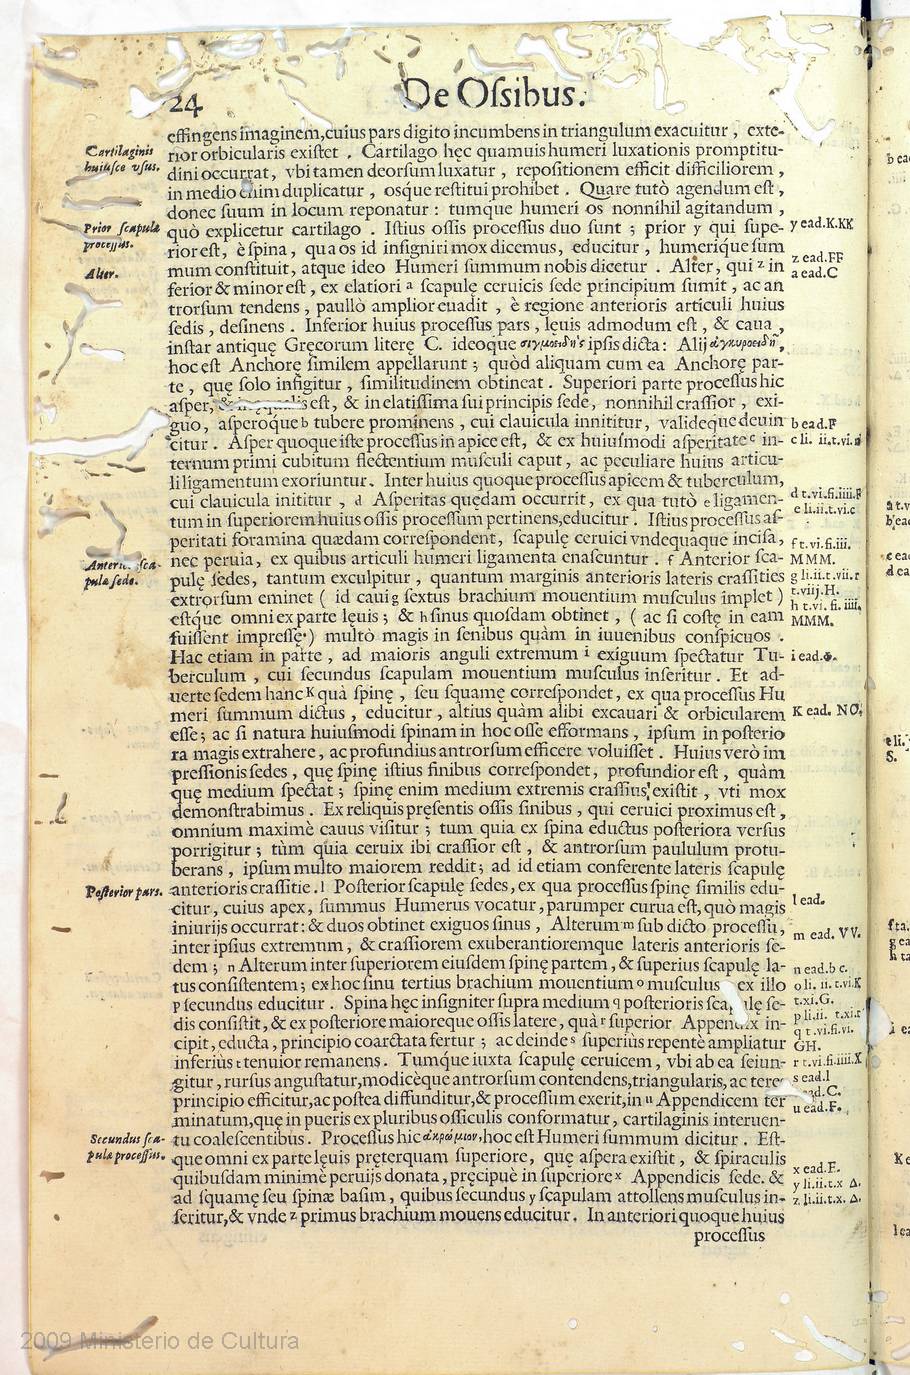 24
De Oſsibus.
effingens imaginem, cuius pars digito incumbens in triangulum exacuitur, exte-
rior orbicularis exiſtet. Cartilago hęc quamuis humeri luxationis promptitu-
dini occurrat, vbi tamen deorſum luxatur, repoſitionem efficit difficiliorem,
in medio enim duplicatur, osque reſtitui prohibet. Quare tutò agendum eſt,
donec ſuum in locum reponatur: tumque humeri os nonnihil agitandum,
quò explicetur cartilago. Iſtius oſſis proceſſus duo ſunt; prior y qui ſupe-
rior eſt, è ſpina, qua os id inſigniri mox dicemus, educitur, humerique ſum
mum conſtituit, atque ideo Humeri ſummum nobis dicetur. Alter, qui z in
ferior & minor eſt, ex elatiori a ſcapulę ceruicis ſede principium ſumit, ac an
trorſum tendens, paullò amplior euadit, è regione anterioris articuli huius
ſedis, deſinens. Inferior huius proceſſus pars, lęuis admodum eſt, & caua,
inſtar antiquę Gręcorum literę C. ideoque σιγμοειδὴς ipſis dicta: Alij ἀγκυροειδῆ,
hoc eſt Anchorę ſimilem appellarunt; quòd aliquam cum ea Anchorę par-
te, quę ſolo infigitur, ſimilitudinem obtineat. Superiori parte proceſſus hic
aſper, eſt, & in elatiſſima ſui principis ſede, nonnihil craſſior, exi-
guo, aſperoque b tubere prominens, cui clauicula innititur, valideque deuin
citur. Aſper quoque iſte proceſſus in apice eſt, & ex huiuſmodi aſperitate c in-
ternum primi cubitum flectentium muſculi caput, ac peculiare huius articu-
li ligamentum exoriuntur. Inter huius quoque proceſſus apicem & tuberculum,
cui clauicula inititur, d Aſperitas quędam occurrit, ex qua tutò e ligamen-
tum in ſuperiorem huius oſſis proceſſum pertinens, educitur. Iſtius proceſſus aſ-
peritati foramina quædam correſpondent, ſcapulę ceruici vndequaque inciſa,
nec peruia, ex quibus articuli humeri ligamenta enaſcuntur. f Anterior ſca-
pulę ſedes, tantum exculpitur, quantum marginis anterioris lateris craſſities
extrorſum eminet ( id caui g ſextus brachium mouentium muſculus implet )
eſtque omni ex parte lęuis; & h ſinus quoſdam obtinet, ( ac ſi coſtę in eam
fuiſſent impreſſę ) multò magis in ſenibus quàm in iuuenibus conſpicuos.
Hac etiam in parte, ad maioris anguli extremum i exiguum ſpectatur Tu-
berculum, cui ſecundus ſcapulam mouentium muſculus inſeritur. Et ad-
uerte ſedem hanc K quà ſpinę, ſeu ſquamę correſpondet, ex qua proceſſus Hu
meri ſummum dictus, educitur, altius quàm alibi excauari & orbicularem
eſſe; ac ſi natura huiuſmodi ſpinam in hoc oſſe efformans, ipſum in poſterio
ra magis extrahere, ac profundius antrorſum efficere voluiſſet. Huius verò im
preſſionis ſedes, quę ſpinę iſtius finibus correſpondet, profundior eſt, quàm
quę medium ſpectat; ſpinę enim medium extremis craſſius exiſtit, vti mox
demonſtrabimus. Ex reliquis pręſentis oſſis finibus, qui ceruici proximus eſt,
omnium maximè cauus viſitur; tum quia ex ſpina eductus poſteriora verſus
porrigitur; tùm quia ceruix ibi craſſior eſt, & antrorſum paululum protu-
berans, ipſum multo maiorem reddit; ad id etiam conferente lateris ſcapulę
anterioris craſſitie. l Poſterior ſcapulę ſedes, ex qua proceſſus ſpinę ſimilis edu-
citur, cuius apex, ſummus Humerus vocatur, parumper curua eſt, quò magis
iniurijs occurrat: & duos obtinet exiguos ſinus, Alterum m ſub dicto proceſſu,
inter ipſius extremum, & craſſiorem exuberantioremque lateris anterioris ſe-
dem; n Alterum inter ſuperiorem eiuſdem ſpinę partem, & ſuperius ſcapulę la-
tus conſiſtentem; ex hoc ſinu tertius brachium mouentium o muſculus ex illo
p ſecundus educitur. Spina hęc inſigniter ſupra medium q poſterioris ſcapulę ſe-
dis conſiſtit, & ex poſteriore maioreque oſſis latere, quà r ſuperior Appendix in-
cipit, educta, principio coarctata fertur; ac deinde s ſuperius repentè ampliatur
inferiùs t tenuior remanens. Tumque iuxta ſcapulę ceruicem, vbi ab ea ſeiun-
gitur, rurſus anguſtatur, modicèque antrorſum contendens, triangularis, ac teres
principio efficitur, ac poſtea diffunditur, & proceſſum exerit, in u Appendicem ter
minatum, quę in pueris ex pluribus oſſiculis conformatur, cartilaginis interuen-
tu coaleſcentibus. Proceſſus hic ἀκρώμιον, hoc eſt Humeri ſummum dicitur. Eſt-
que omni ex parte lęuis pręterquam ſuperiore, quę aſpera exiſtit, & ſpiraculis
quibuſdam minimè peruijs donata, pręcipuè in ſuperiore x Appendicis ſede. &
ad ſquamę ſeu ſpinæ baſim, quibus ſecundus y ſcapulam attollens muſculus in-
ſeritur, & vnde z primus brachium mouens educitur. In anteriori quoque huius
proceſſus
Cartilaginis
huiuſce vſus.
Prior ſcapulæ
proceſſus.
Alter.
ſca-
pulæ ſede.
Poſterior pars.
Secundus ſca-
pulæ proceſſus.
y ead.K.KK
z ead.FF
a ead.C
b ead.F
c li. ii.t.vi.
d t.vi.fi.iiii.F
e li.ii.t.vi.c
f t.vi.fi.iii.
MMM.
g li.ii.t.vii.r
t.viij.H.
h t.vi. fi. iiii.
MMM.
i ead.Φ.
K ead. NO.
l ead.
m ead. VV.
n ead.b c.
o li. ii. t.vi.K
t.xi.G.
p li.ii. t.xi.
q t.vi.fi.vi.
GH.
r t.vi.fi.iiii.X
s ead.l
ead.C.
u ead.F.
x ead.E.
y li.ii.t.x Δ.
z li.ii.t.x. Δ.
2009 Ministerio de Cultura